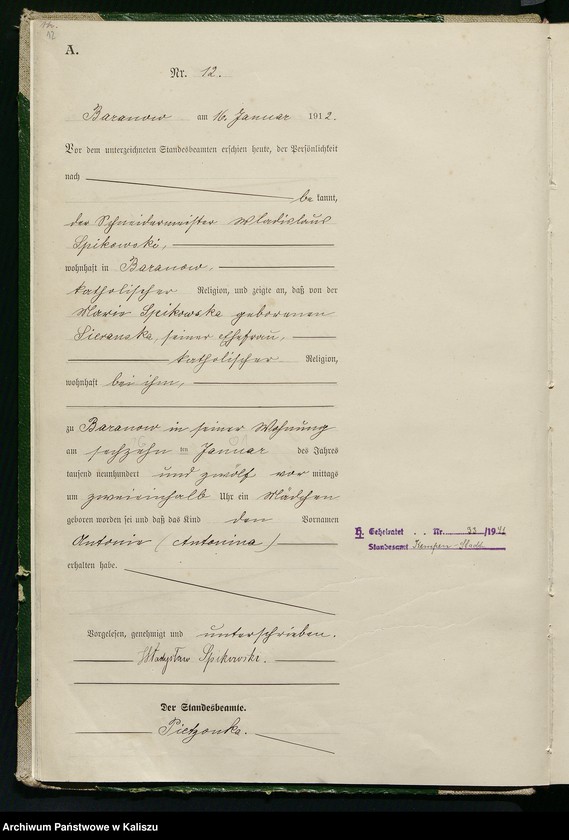 Nr.
12
A.
Nr. 12.
Baranow am 16. Januar 1912.
Vor dem unterzeichneten Standesbeamten erschien heute, der Persönlichkeit
nach
bekannt,
der Schneidermeister Wladislaus
Spikowski,
wohnhaft in Baranow,
katholischer Religion, und zeigte an, daß von der
Maria Spikowska geborenen
Sieranska, seiner Ehefrau,
katholischer Religion,
wohnhaft bei ihm,
zu Baranow in seiner Wohnung
am sechzehn ten Januar des Jahres
tausend neunhundert und zwölf vor mittags
um zweieinhalb Uhr ein Mädchen
geboren worden sei und daß das Kind den Vornamen
Antonie (Antonina)
erhalten habe.
H. Geheiratet . . Nr. 33/1941
Standesamt Kempen-Stadt
Vorgelesen, genehmigt und unterschrieben.
Władysław Spikowski.
Der Standesbeamte.
Pietzonka.
Archiwum Państwowe w Kaliszu